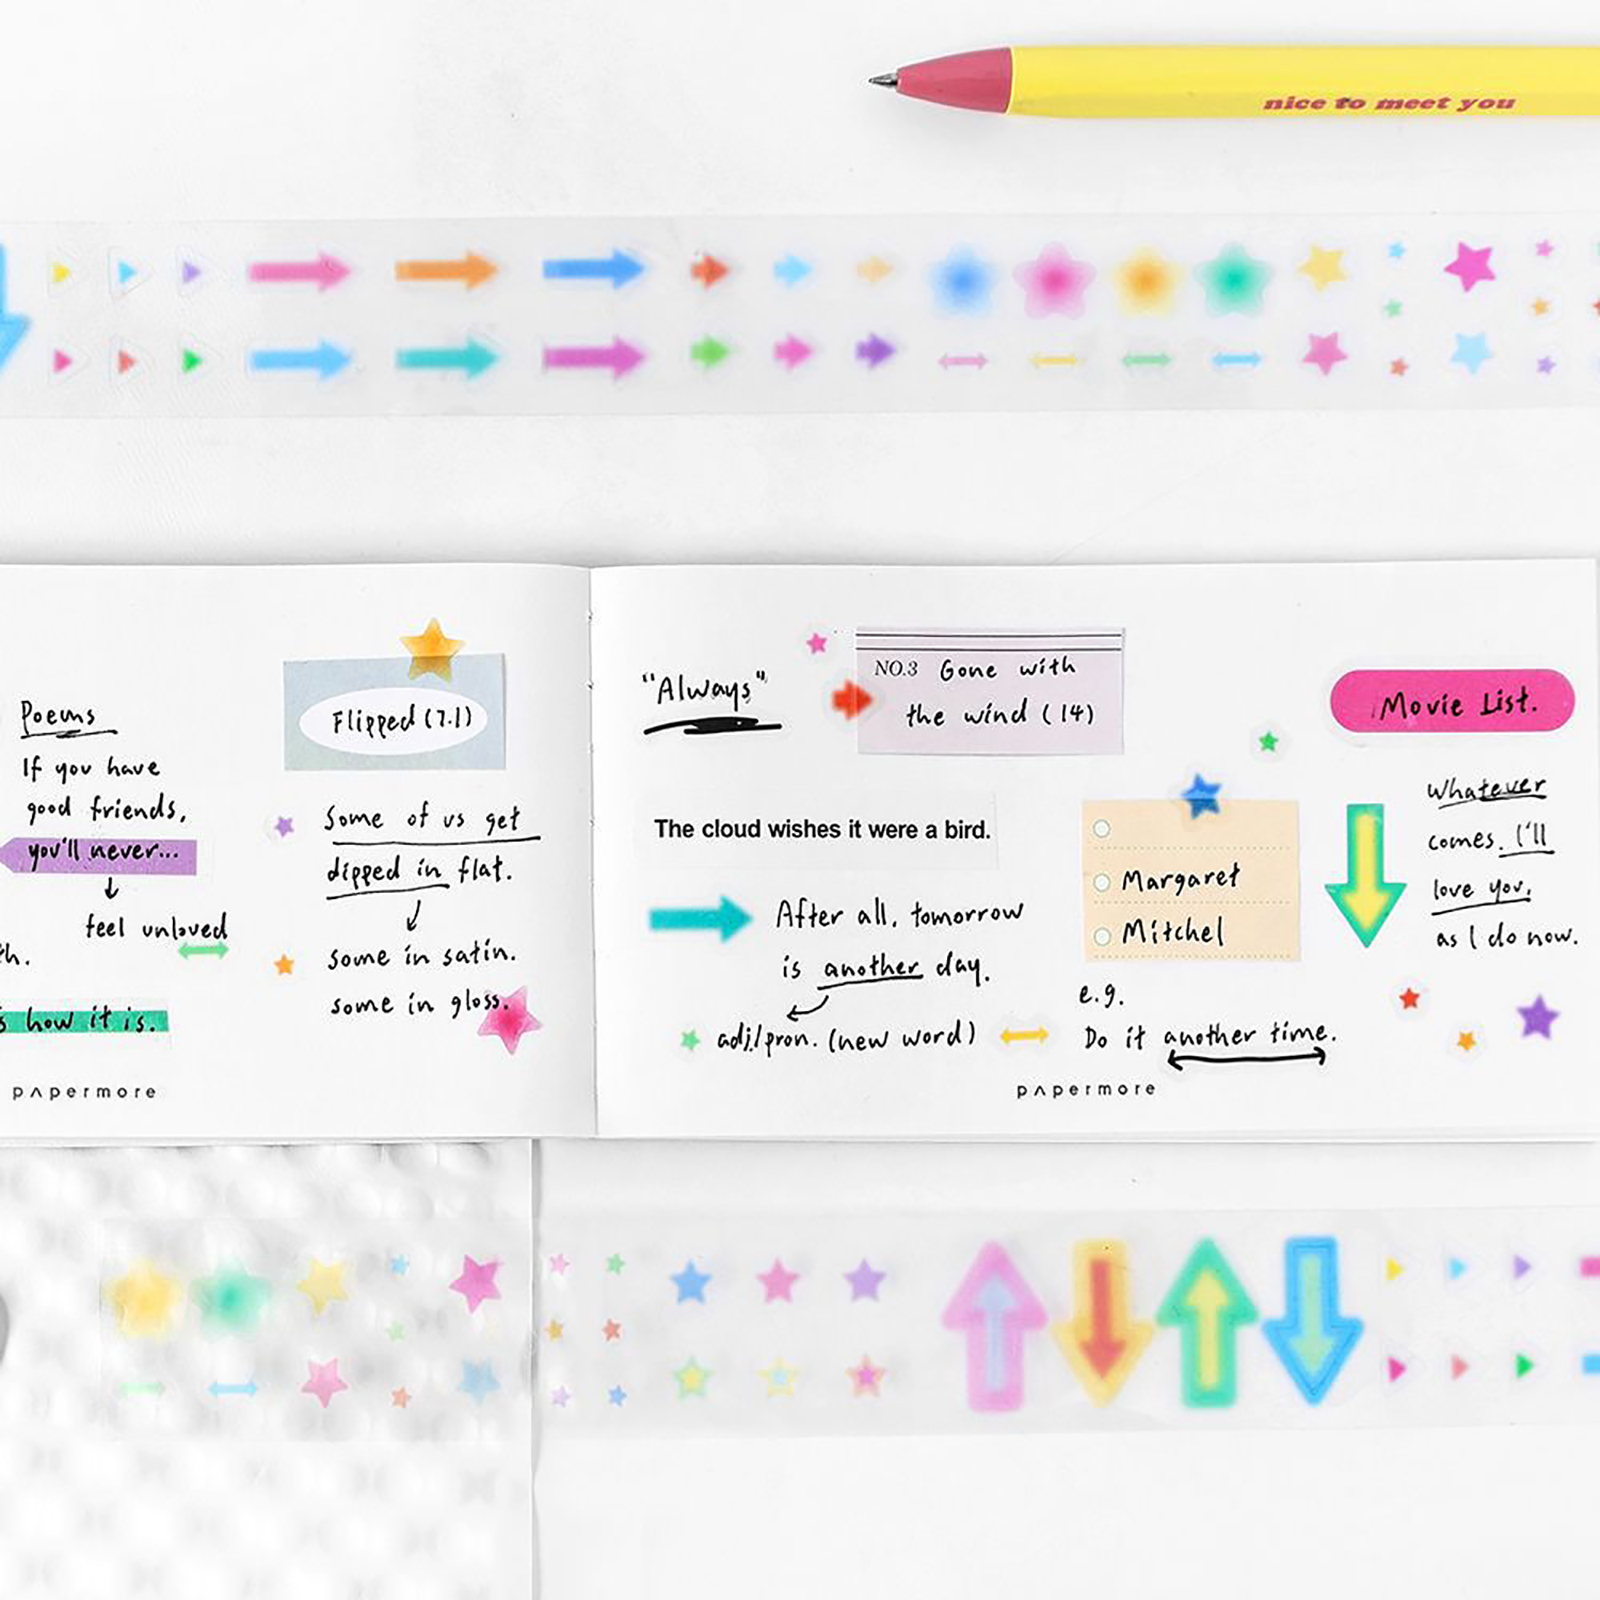 nice to meet you
Poems
If you have
good friends,
you'll never...
feel unloved
th.
s how it is.
Flipped (7.1)
Some of us get
dipped in flat.
some in satin.
some in gloss.
papermore
"Always"
NO.3 Gone with
the wind (14)
The cloud wishes it were a bird.
After all, tomorrow
is another day.
adj./pron. (new word)
Margaret
Mitchel
e.g.
Do it another time.
Movie List.
Whatever
comes. I'll
love you,
as I do now.
papermore